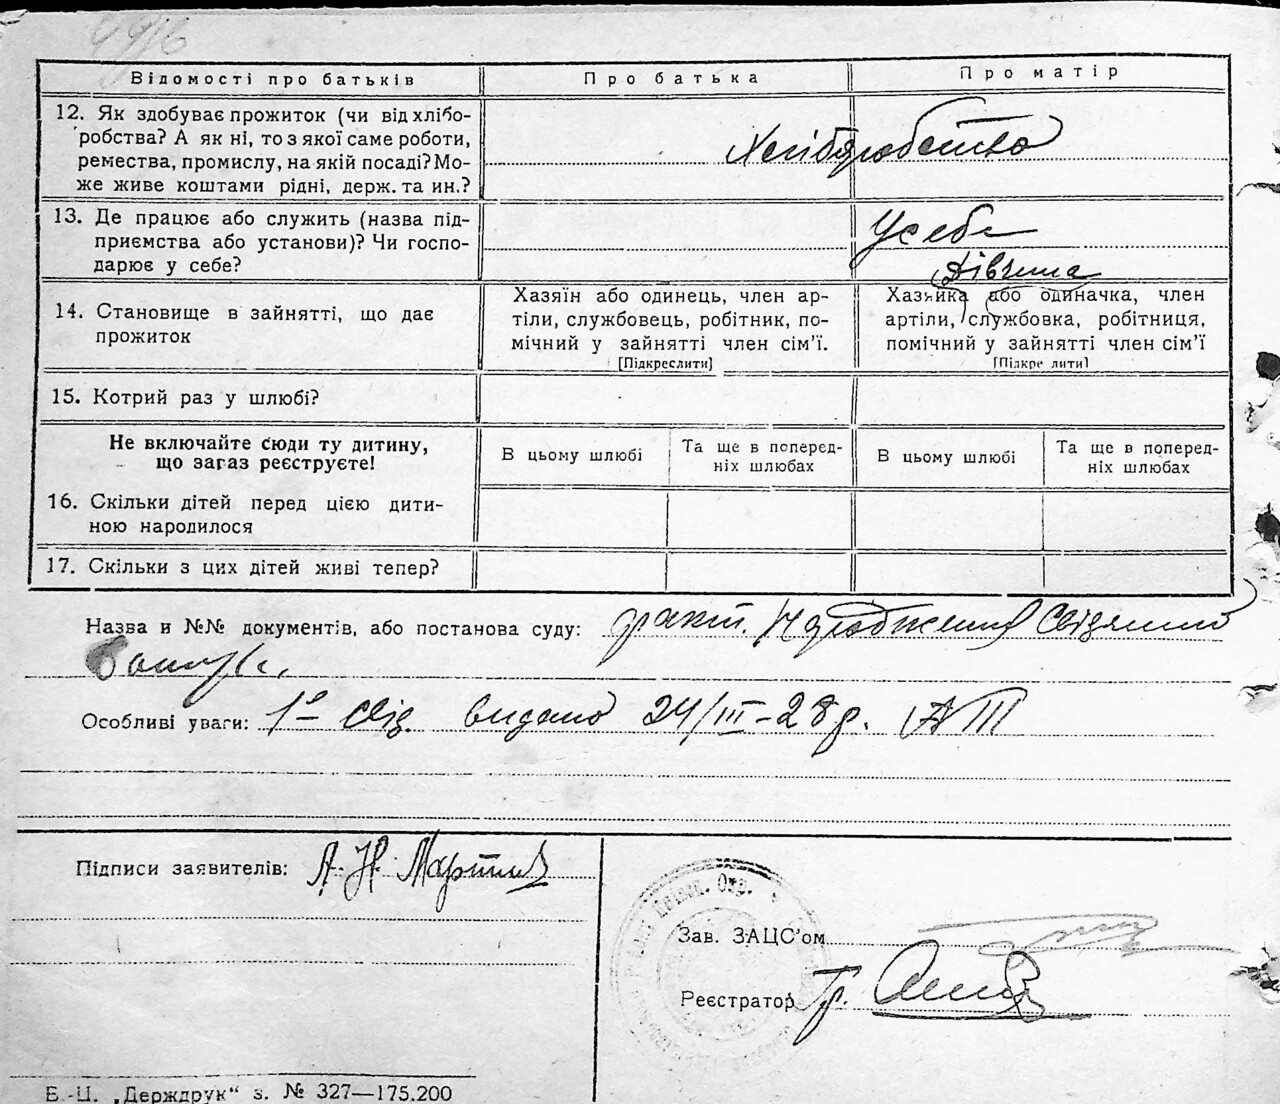 4916
Відомості про батьків
Про батька
Про матір
12. Як здобуває прожиток (чи від хлібо-
робства? А як ні, то з якої саме роботи,
ремества, промислу, на якій посаді? Мо-
же живе коштами рідні, держ. та ин.?
Хліборобство
13. Де працює або служить (назва під-
приємства або установи)? Чи госпо-
дарює у себе?
У себе
дівчина
14. Становище в зайнятті, що дає
прожиток
Хазяїн або одинець, член ар-
тіли, службовець, робітник, по-
мічний у зайнятті член сім’ї.
[Підкреслити]
Хазяйка або одиначка, член
артіли, службовка, робітниця,
помічний у зайнятті член сім’ї
[Підкре лити]
15. Котрий раз у шлюбі?
Не включайте сюди ту дитину,
що загаз реєструєте!
В цьому шлюбі
Та ще в поперед-
ніх шлюбах
В цьому шлюбі
Та ще в поперед-
ніх шлюбах
16. Скільки дітей перед цією дити-
ною народилося
17. Скільки з цих дітей живі тепер?
Назва и №№ документів, або постанова суду: факт. Народження
Особливі уваги: 1е свід. видано 24/III-28 р. АП
Підписи заявителів: А. Н. Мартин
Зав. ЗАЦС’ом
Реєстратор Гр.
Б.-Ц. „Держдрук“ з. № 327—175.200